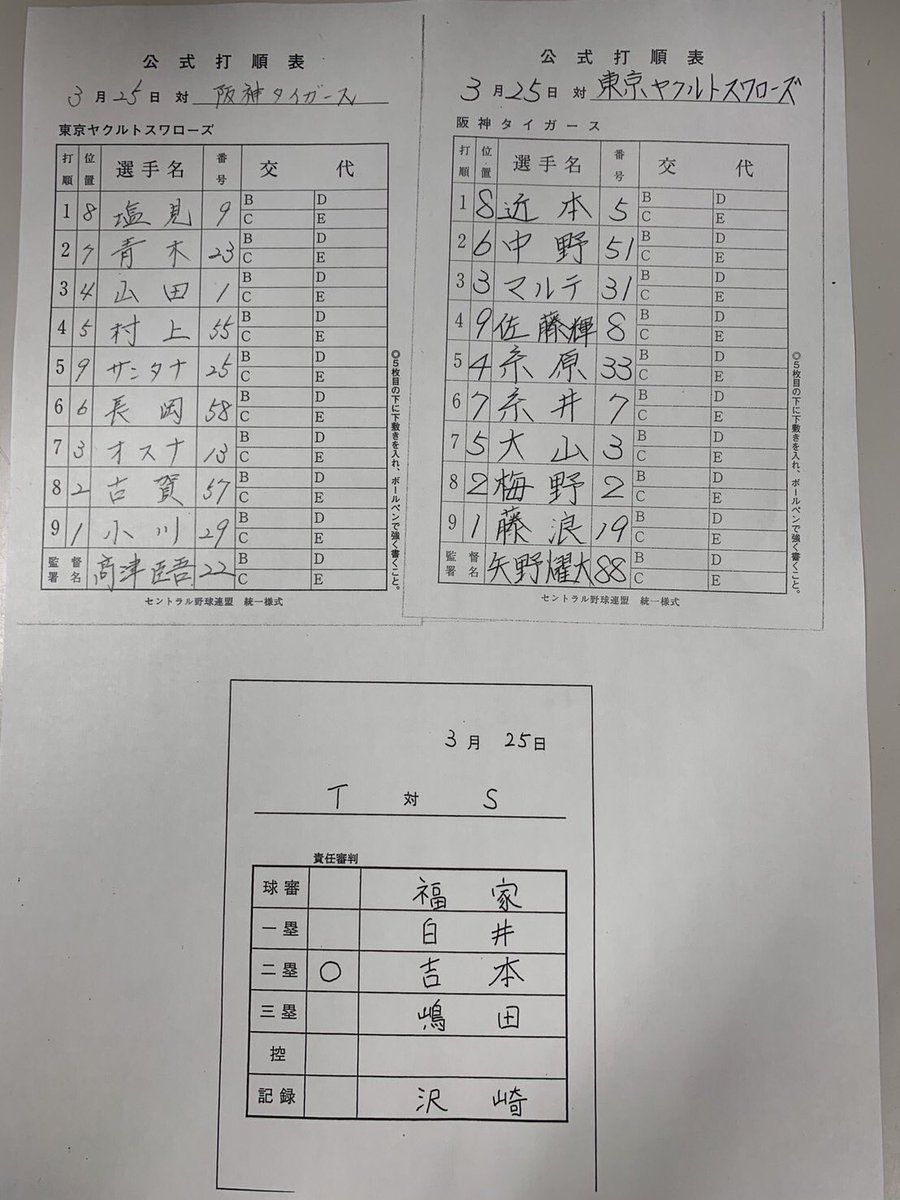 公式打順表
3月25日 対 阪神タイガース
東京ヤクルトスワローズ
打順 位置 選手名 番号 交代
1 8 塩見 9 B D C E
2 7 青木 23 B D C E
3 4 山田 1 B D C E
4 5 村上 55 B D C E
5 9 サンタナ 25 B D C E
6 6 長岡 58 B D C E
7 3 オスナ 13 B D C E
8 2 古賀 57 B D C E
9 1 小川 29 B D C E
監督署名 高津臣吾 22 B D C E
◎5枚目の下に下敷きを入れ、ボールペンで強く書くこと。
セントラル野球連盟 統一様式
公式打順表
3月25日 対 東京ヤクルトスワローズ
阪神タイガース
打順 位置 選手名 番号 交代
1 8 近本 5 B D C E
2 6 中野 51 B D C E
3 3 マルテ 31 B D C E
4 9 佐藤輝 8 B D C E
5 4 糸原 33 B D C E
6 7 糸井 7 B D C E
7 5 大山 3 B D C E
8 2 梅野 2 B D C E
9 1 藤浪 19 B D C E
監督署名 矢野燿大 88 B D C E
◎5枚目の下に下敷きを入れ、ボールペンで強く書くこと。
セントラル野球連盟 統一様式
3月 25日
T 対 S
責任審判
球審 福家
一塁 白井
二塁 ○ 吉本
三塁 嶋田
控
記録 沢崎